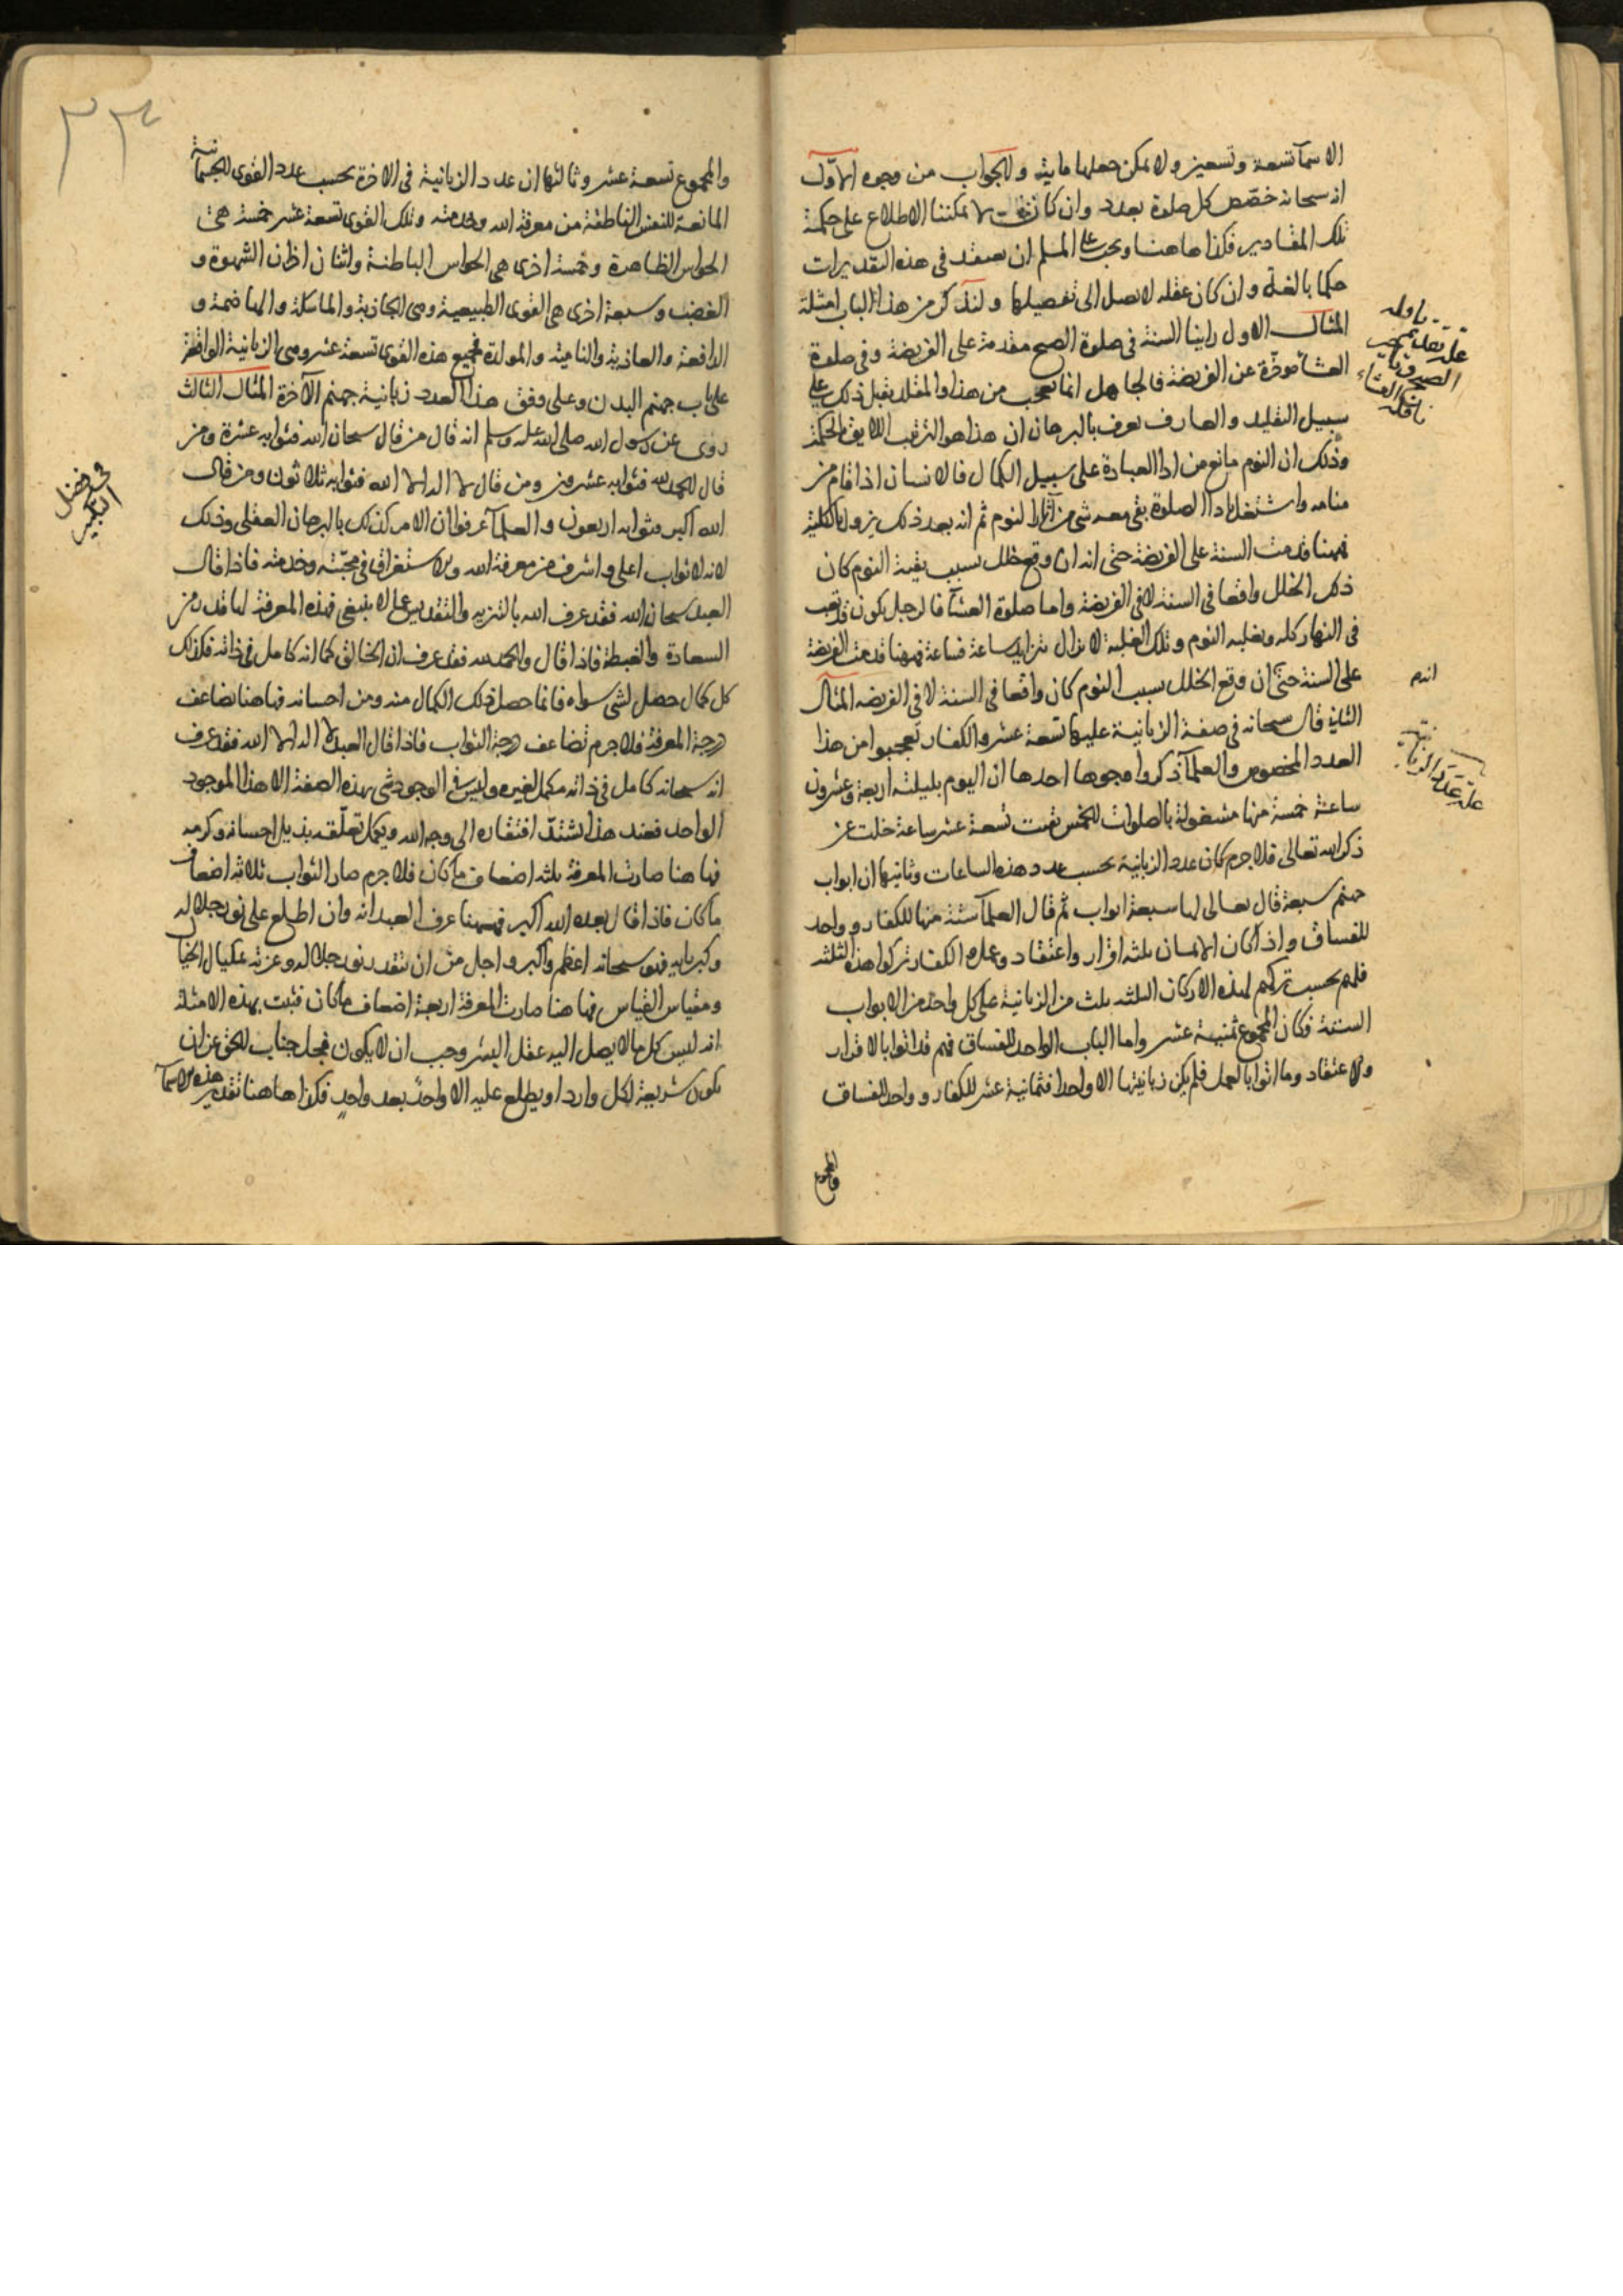 الاسمآ تسعة وتسعين ولا يمكن جعلها ماية والجواب من وجوه الاول
انه سبحانه خصّص كل صلوة بعدد وان كان لا يمكننا الاطلاع على حكمة
تلك المقادير فكذا هاهنا ويجب على المسلم ان يعتقد في هذه التقديرات
حكما بالغة وان كان عقله لا يصل الى تفصيلها ولنذكر من هذا الباب امثلة
المثال الاول راينا السنة في صلوة الصبح مقدمة على الفريضة وفي صلوة
العشآ موخّرة عن الفريضة فالجاهل انما تعجب من هذا والمقلد يقبل ذلك على
سبيل التقليد والعارف يعرف بالبرهان ان هذا هو الترتيب اللايق بالحكمة
وذلك ان النوم مانع من ادا العبادة على سبيل الكمال فالانسان اذا قام من
منامه واشتغل بادا الصلوة بقى معه شى من آثار النوم ثم انه بعد ذلك يزول بالكلية
فههنا قدمت السنة على الفريضة حتى انه ان وقع خلل بسبب بقية النوم كان
ذلك الخلل واقعا في السنة لا في الفريضة واما صلوة العشآ فالرجل يكون قد تعب
في النهار كله ويغلبه النوم وتلك الغلبة لا تزال تتزايد ساعة فساعة فههنا قدمت الفريضة
على السنة حتى ان وقع الخلل بسبب النوم كان واقعا في السنة لا في الفريضه المثال
الثاني قال سبحانه في صفة الزبانية عليها تسعة عشر والكفار تعجبوا من هذا
العدد المخصوص والعلمآ ذكروا وجوها احدها ان اليوم بليلته اربعة وعشرون
ساعة خمسة منها مشغولة بالصلوات الخمس بقيت تسعة عشر ساعة خلت عن
ذكر الله تعالى فلا جرم كان عدد الزبانية بحسب عدد هذه الساعات وثانيها ان ابواب
جهنم سبعة قال تعالى لها سبعة ابواب ثم قال العلمآ ستة منها للكفار وواحد
للفساق واذا كان الايمان ثلثه اقرار واعتقاد وعمل الكفار تركوا هذه الثلثه
فلهم بحسب تركهم لهذه الاركان الثلثه ثلث من الزبانية على كل واحد من الابواب
الستة فكان المجموع ثمنية عشر واما الباب الواحد للفساق فهم قد اتوا بالاقرار
والاعتقاد وما اتوا بالعمل فلم يكن زبانيتها الا واحدا فثمانية عشر للكفار وواحد للفساق
والمجموع
علة تقديم
انه
علة عدد الزبانية
٣٣
والمجموع تسعة عشر وثالثها ان عدد الزبانية في الاخرة بحسب عدد القوى الجسمانية
المانعة للنفس الناطقة من معرفة الله وخدمته وتلك القوى تسعة عشر خمسة هي
الحواس الظاهرة وخمسة اخرى هي الحواس الباطنة واثنان اخران الشهوة و
الغضب وسبعة اخرى هي القوى الطبيعية وهي الجاذبة والماسكة والهاضمة و
الدافعة والغاذية والنامية والمولدة فجميع هذه القوى تسعة عشر وهي الزبانية الواقفة
على باب جهنم البدن وعلى وفق هذا العدد زبانية جهنم الآخرة المثال الثالث
روى عن رسول الله صلى الله عليه وسلم انه قال من قال سبحان الله فثوابه عشرة ومن
قال الحمد لله فثوابه عشرين ومن قال لا اله الا الله فثوابه ثلاثون ومن قال
الله اكبر فثوابه اربعون والعلمآ عرفوا ان الامر كذلك بالبرهان العقلى وذلك
لانه لا ثواب اعلى واشرف من معرفة الله والاستغراق في محبّته وخدمته فاذا قال
العبد سبحان الله فقد عرف الله بالتنزيه والتقديس عما لا ينبغى فهذه المعرفة لها قدر من
السعادة والغبطة فاذا قال والحمد لله فقد عرف ان الخالق كما انه كامل في ذاته فكذلك
كل كمال حصل لشى سواه فانما حصل ذلك الكمال منه ومن احسانه فهاهنا تضاعف
درجة المعرفة فلا جرم تضاعف درجة الثواب فاذا قال العبد لا اله الا الله فقد عرف
انه سبحانه كامل في ذاته مكمل لغيره وليس في الوجود شى بهذه الصفة الا هذا الموجود
الواحد فعند هذا اشتدّ افتقاره الى وجه الله ويكمل تعلّقه بذيل احسانه وكرمه
فهاهنا صارت المعرفة ثلثه اضعاف ما كان فلا جرم صار الثواب ثلاثه اضعاف
ما كان فاذا قال بعده الله اكبر فههنا عرف العبد انه وان اطلع على نور جلاله
وكبريايه فهو سبحانه اعظم واكبر واجل من ان تقدر نور جلاله وعزته بمكيال الخيال
ومقياس القياس فهاهنا صارت المعرفة اربعة اضعاف ما كان فثبت بهذه الامثلة
انه ليس كل ما لا يصل اليه عقل البشر وجب ان لا يكون فجل جناب الحق عن ان
يكون شريعة لكل وارد او يطلع عليه الا واحدٌ بعد واحدٍ فكذا هاهنا تقدير هذه الاسمآ
في فضل
التكبير